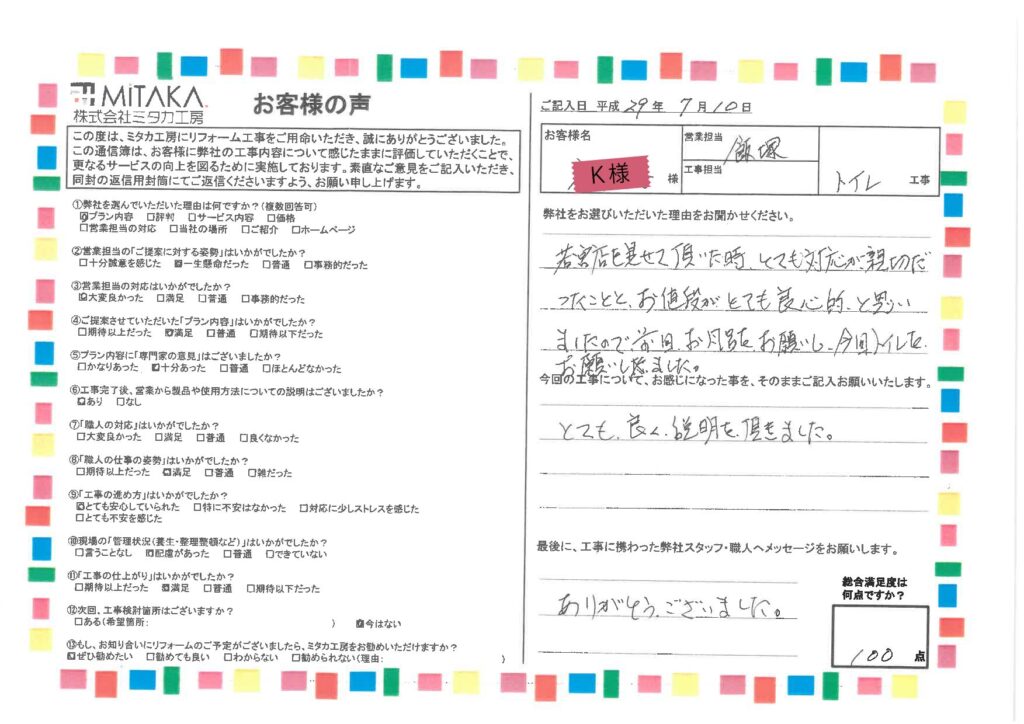 MITAKA
株式会社ミタカ工房
お客様の声
この度は、ミタカ工房にリフォーム工事をご用命いただき、誠にありがとうございました。
この通信簿は、お客様に弊社の工事内容について感じたままに評価していただくことで、
更なるサービスの向上を図るために実施しております。素直なご意見をご記入いただき、
同封の返信用封筒にてご返信くださいますよう、お願い申し上げます。
①弊社を選んでいただいた理由は何ですか?(複数回答可)
☑プラン内容 □評判 □サービス内容 □価格
□営業担当の対応 □当社の場所 □ご紹介 □ホームページ
②営業担当の「ご提案に対する姿勢」はいかがでしたか?
□十分誠意を感じた ☑一生懸命だった □普通 □事務的だった
③営業担当の対応はいかがでしたか?
☑大変良かった □満足 □普通 □事務的だった
④ご提案させていただいた「プラン内容」はいかがでしたか?
□期待以上だった ☑満足 □普通 □期待以下だった
⑤プラン内容に「専門家の意見」はございましたか?
□かなりあった ☑十分あった □普通 □ほとんどなかった
⑥工事完了後、営業から製品や使用方法についての説明はございましたか?
☑あり □なし
⑦「職人の対応」はいかがでしたか?
□大変良かった □満足 □普通 □良くなかった
⑧「職人の仕事の姿勢」はいかがでしたか?
□期待以上だった ☑満足 □普通 □雑だった
⑨「工事の進め方」はいかがでしたか?
☑とても安心していられた □特に不安はなかった □対応に少しストレスを感じた
□とても不安を感じた
⑩現場の「管理状況(養生・整理整頓など)」はいかがでしたか?
□言うことなし ☑配慮があった □普通 □できていない
⑪「工事の仕上がり」はいかがでしたか?
□期待以上だった ☑満足 □普通 □期待以下だった
⑫次回、工事検討箇所はございますか?
□ある(希望箇所: ) ☑今はない
⑬もし、お知り合いにリフォームのご予定がございましたら、ミタカ工房をお勧めいただけますか?
☑ぜひ勧めたい □勧めても良い □わからない □勧められない(理由: )
ご記入日 平成 29年 7月10日
お客様名 K様 様
営業担当 飯塚
工事担当
トイレ 工事
弊社をお選びいただいた理由をお聞かせください。
店を見せて頂いた時、とても対応が親切だ
ったことと、お値段がとても良心的と思い
ましたので前回お風呂をお願いし、今回トイレを
お願いし ました。
今回の工事について、お感じになった事を、そのままご記入お願いいたします。
とても、良く、説明を、頂きました。
最後に、工事に携わった弊社スタッフ・職人へメッセージをお願いします。
ありがとう、ございました。
総合満足度は
何点ですか?
100 点